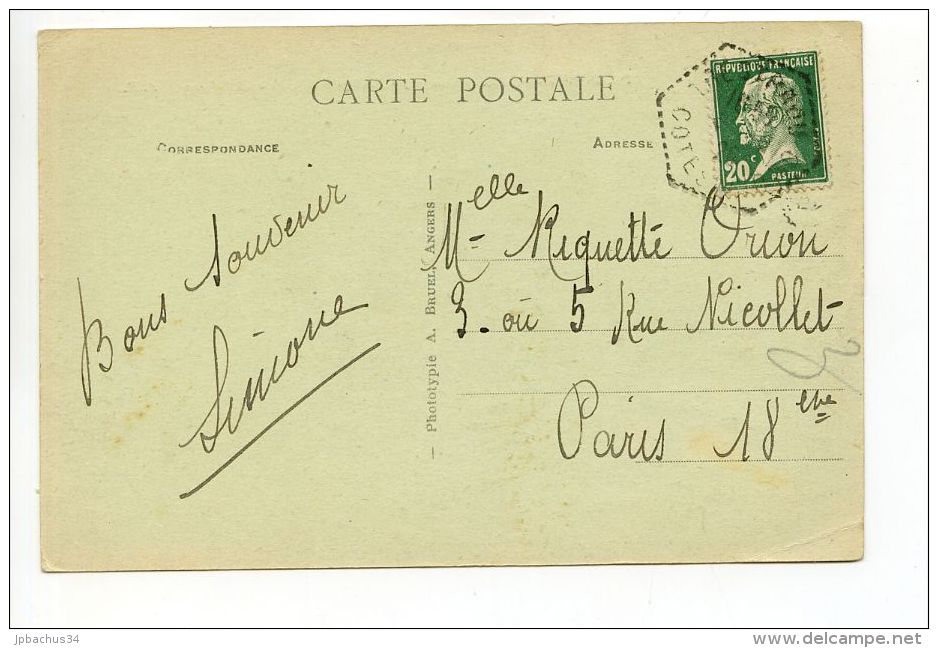 CARTE POSTALE
CORRESPONDANCE
ADRESSE
REPVBLIQUE FRANÇAISE
20 c
PASTEUR
COTES
Bons souvenir
Simone
— Phototypie A. BRUEL, ANGERS —
Melle Riquette Orion
3. ou 5 Rue Nicollet
Paris 18 eme
jpbachus34
www.delcampe.net